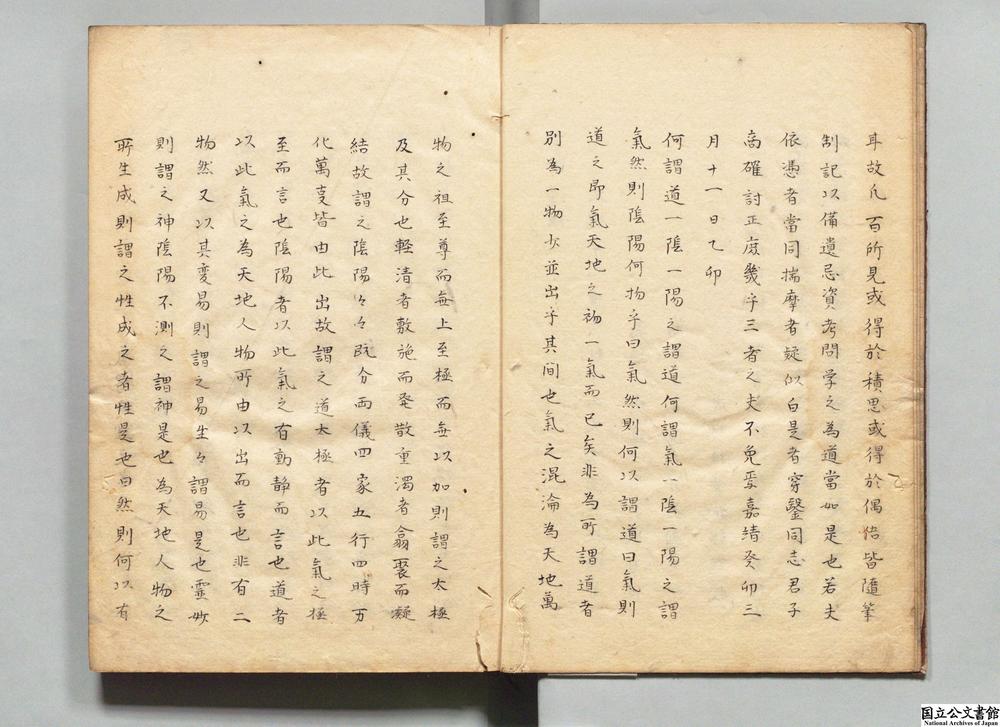 耳故凡百所見或得於積思或得於偶悟皆隨筆
制記以備遺忘資考問学之為道當如是也若夫
依憑者當同揣摩者疑似白是者穿鑿同志君子
商確討正庶幾乎三者之失不免乎嘉靖癸卯三
月十一日乙卯
何謂道一陰一陽之謂道何謂氣一陰一陽之謂
氣然則陰陽何物乎曰氣然則何以謂道曰氣則
道之昂氣天地之初一氣而已矣非為所謂道者
別為一物以並出乎其間也氣之混淪為天地萬
物之祖至尊而無上至極而無以加則謂之太極
及其分也軽清者敷施而発散重濁者翕聚而凝
結故謂之陰陽々々既分両儀四象五行四時万
化萬事皆由此出故謂之道太極者以此氣之極
至而言也陰陽者以此氣之有動静而言也道者
以此氣之為天地人物所由以出而言也非有二
物然又以其変易則謂之易生々謂易是也霊妙
則謂之神陰陽不測之謂神是也為天地人物之
所生成則謂之性成之者性是也曰然則何以有
国立公文書館
National Archives of Japan